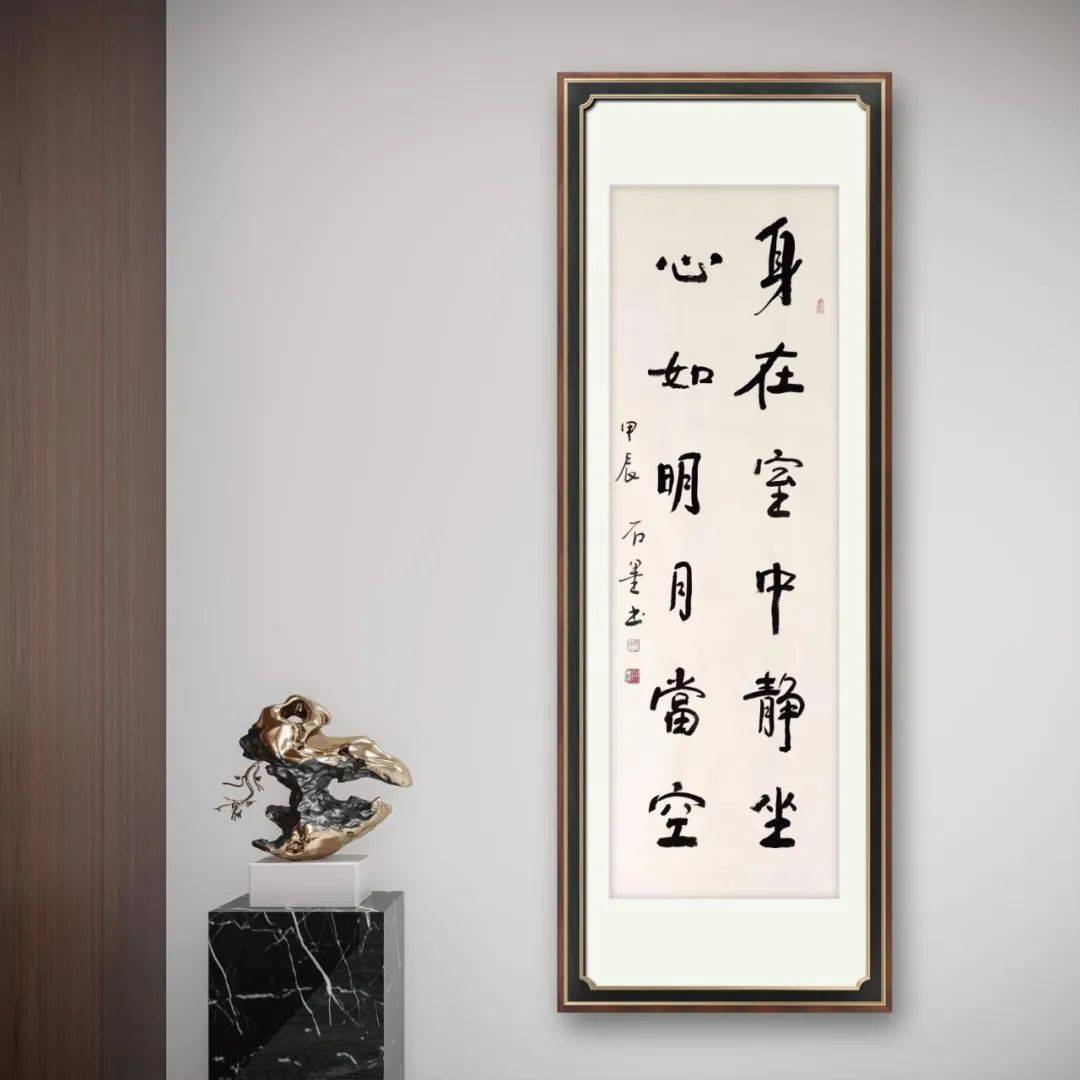 身在室中静坐
心如明月當空
甲辰 石墨书